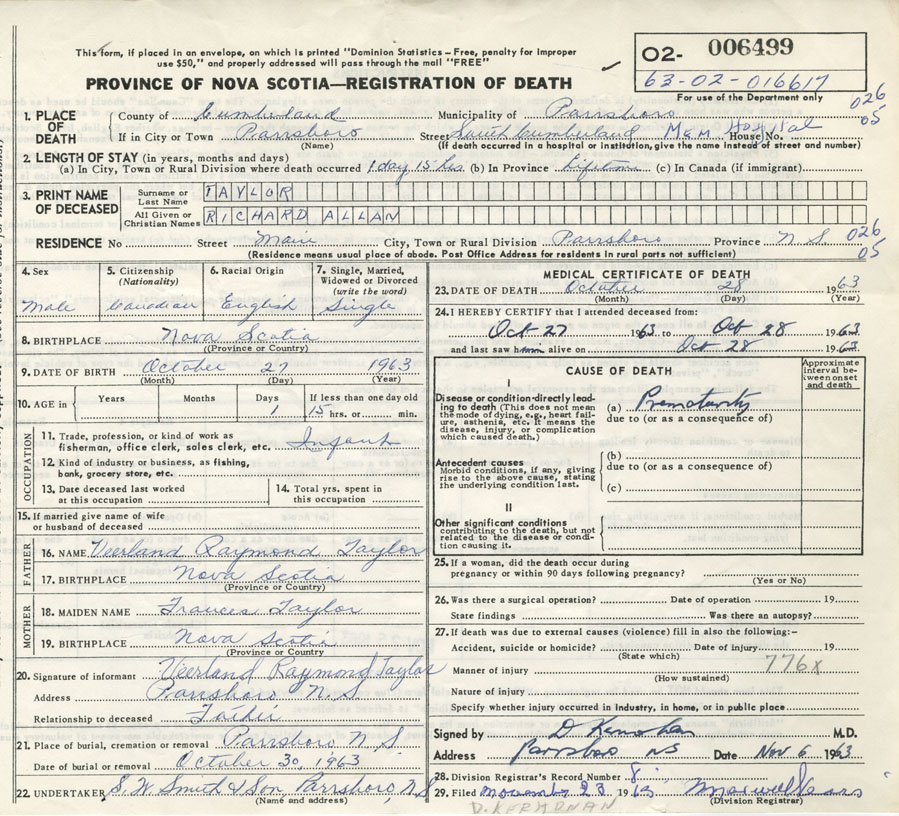 This form, if placed in an envelope, on which is printed "Dominion Statistics – Free, penalty for improper
use $50," and properly addressed will pass through the mail "FREE"
PROVINCE OF NOVA SCOTIA—REGISTRATION OF DEATH
02- 006499
63-02-016617
For use of the Department only
026
05
1. PLACE OF DEATH
County of Cumberland Municipality of Parrsboro
If in City or Town Parrsboro Street South Cumberland Mem Hospital House No.
(Name) (If death occurred in a hospital or institution, give the name instead of street and number)
2. LENGTH OF STAY (in years, months and days)
(a) In City, Town or Rural Division where death occurred 1 day 15 hrs (b) In Province Lifetime (c) In Canada (if immigrant)
3. PRINT NAME OF DECEASED
Surname or Last Name TAYLOR
All Given or Christian Names RICHARD ALLAN
RESIDENCE No Street Main City, Town or Rural Division Parrsboro Province N S
026
05
(Residence means usual place of abode. Post Office Address for residents in rural parts not sufficient)
4. Sex
Male
5. Citizenship (Nationality)
Canadian
6. Racial Origin
English
7. Single, Married, Widowed or Divorced (write the word)
Single
8. BIRTHPLACE Nova Scotia
(Province or Country)
9. DATE OF BIRTH October 27 1963
(Month) (Day) (Year)
10. AGE in Years Months Days 1 If less than one day old 15 hrs. or min.
OCCUPATION
11. Trade, profession, or kind of work as
fisherman, office clerk, sales clerk, etc. Infant
12. Kind of industry or business, as fishing,
bank, grocery store, etc.
13. Date deceased last worked
at this occupation
14. Total yrs. spent in
this occupation
15. If married give name of wife
or husband of deceased
FATHER
16. NAME Veerland Raymond Taylor
17. BIRTHPLACE Nova Scotia
(Province or Country)
MOTHER
18. MAIDEN NAME Frances Taylor
19. BIRTHPLACE Nova Scotia
(Province or Country
20. Signature of informant Veerland Raymond Taylor
Address Parrsboro N.S
Relationship to deceased Father
21. Place of burial, cremation or removal Parrsboro N.S.
Date of burial or removal October 30, 1963
22. UNDERTAKER S. W Smith & Son, Parrsboro, N.S
(Name and address)
MEDICAL CERTIFICATE OF DEATH
23. DATE OF DEATH October 28 1963
(Month) (Day) (Year)
24. I HEREBY CERTIFY that I attended deceased from:
Oct 27 1963 to Oct 28 1963
and last saw him alive on Oct 28 1963
CAUSE OF DEATH
Approximate interval between onset and death
I
Disease or condition directly leading to death (This does not mean the mode of dying, e.g., heart failure, asthenia, etc. It means the disease, injury, or complication which caused death.)
(a) Prematurity
due to (or as a consequence of)
Antecedent causes
Morbid conditions, if any, giving rise to the above cause, stating the underlying condition last.
(b)
due to (or as a consequence of)
(c)
II
Other significant conditions
contributing to the death, but not related to the disease or condition causing it.
25. If a woman, did the death occur during
pregnancy or within 90 days following pregnancy?
(Yes or No)
26. Was there a surgical operation? Date of operation 19
State findings Was there an autopsy?
27. If death was due to external causes (violence) fill in also the following:–
Accident, suicide or homicide? Date of injury 19
(State which)
776x
Manner of injury
(How sustained)
Nature of injury
Specify whether injury occurred in industry, in home, or in public place
Signed by D Kernohan M.D.
Address Parrsboro NS Date Nov 6 1963
28. Division Registrar's Record Number 8
29. Filed November 23 1963
(Division Registrar)
D. KERNOHAN